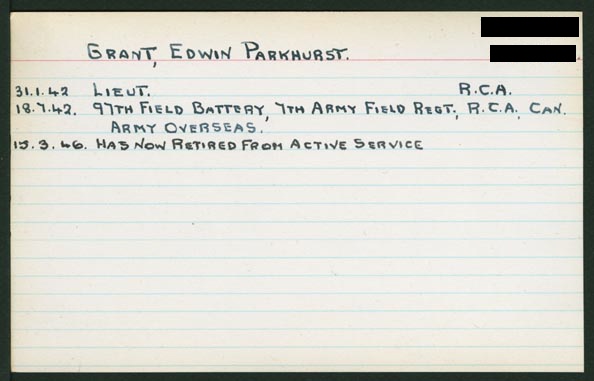 GRANT, EDWIN PARKHURST.
31.1.42 LIEUT. R.C.A.
18.7.42. 97TH FIELD BATTERY, 7TH ARMY FIELD REGT., R.C.A. CAN.
ARMY OVERSEAS.
15.3.46. HAS NOW RETIRED FROM ACTIVE SERVICE